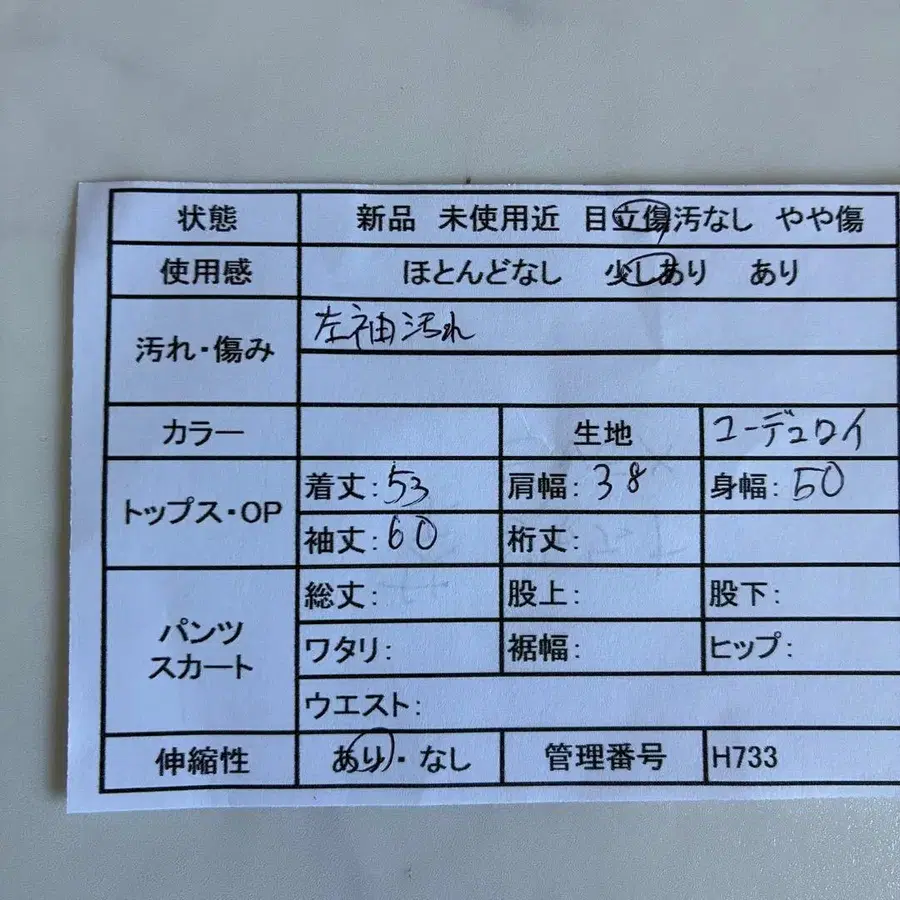 状態 新品 未使用近 目立傷汚なし やや傷
使用感 ほとんどなし 少しあり あり
汚れ・傷み 左袖汚れ
カラー 生地 コーデュロイ
トップス・OP 着丈:53 肩幅:38 身幅:50
袖丈:60 裄丈:
パンツ スカート 総丈: 股上: 股下:
ワタリ: 裾幅: ヒップ:
ウエスト:
伸縮性 あり・なし 管理番号 H733